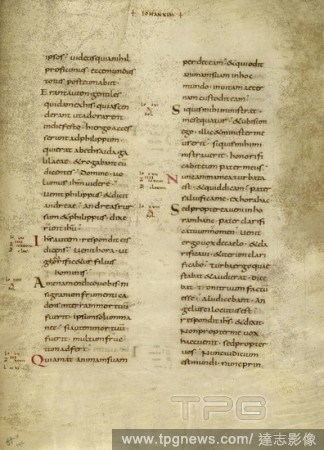 + IOHANNEM +
ipsos
profi
totus post eum abiit
Erant autem gentiles
quidam ex his
derant ut adorarent
in die festo hi ergo acces
serunt ad philippum
qui erat a bethsaida ga
lilaeae & rogabant eu
dicentes Domine uo
lumus ihm uidere
uenit philippus & dicit
andreae andreas rur
sum & philippus dixe
runt ihu
Ihs autem respondit eis
dicens uenit hora ut
glorificetur filius
hominis
Amen amen dico uobis ni
si granum frumenti ca
dens in terram mortuu
fuerit ipsum solum ma
net si autem mortuu
fuerit multum fruc
tum adfert
Qui amat animam suam
perdet eam & qui odit
animam suam in hoc
mundo in uitam aeter
nam custodit eam
Si quis mihi ministrat
me sequatur & ubi sum
ego illic & minister meus
erit si quis mihi mi
nistrauerit honorifi
cabit eum pater meus
Nunc anima mea turbata
est & quid dicam pater
salui fica me ex hora hac
Sed propterea ueni in ho
ram hanc pater clarifi
ca tuum nomen Uenit
ergo uox de caelo & cla
rificaui & iterum clari
ficabo Turba ergo quae
stabat & audierat dice
bat tonitruum factu
esse alii dicebant an
gelus ei locutus est
respondit ihs & dixit
Non propter me uox
haec uenit sed propter
uos Nunc iudicium
est mundi nunc prin
TPG
www.tpgnews.com / 達志影像